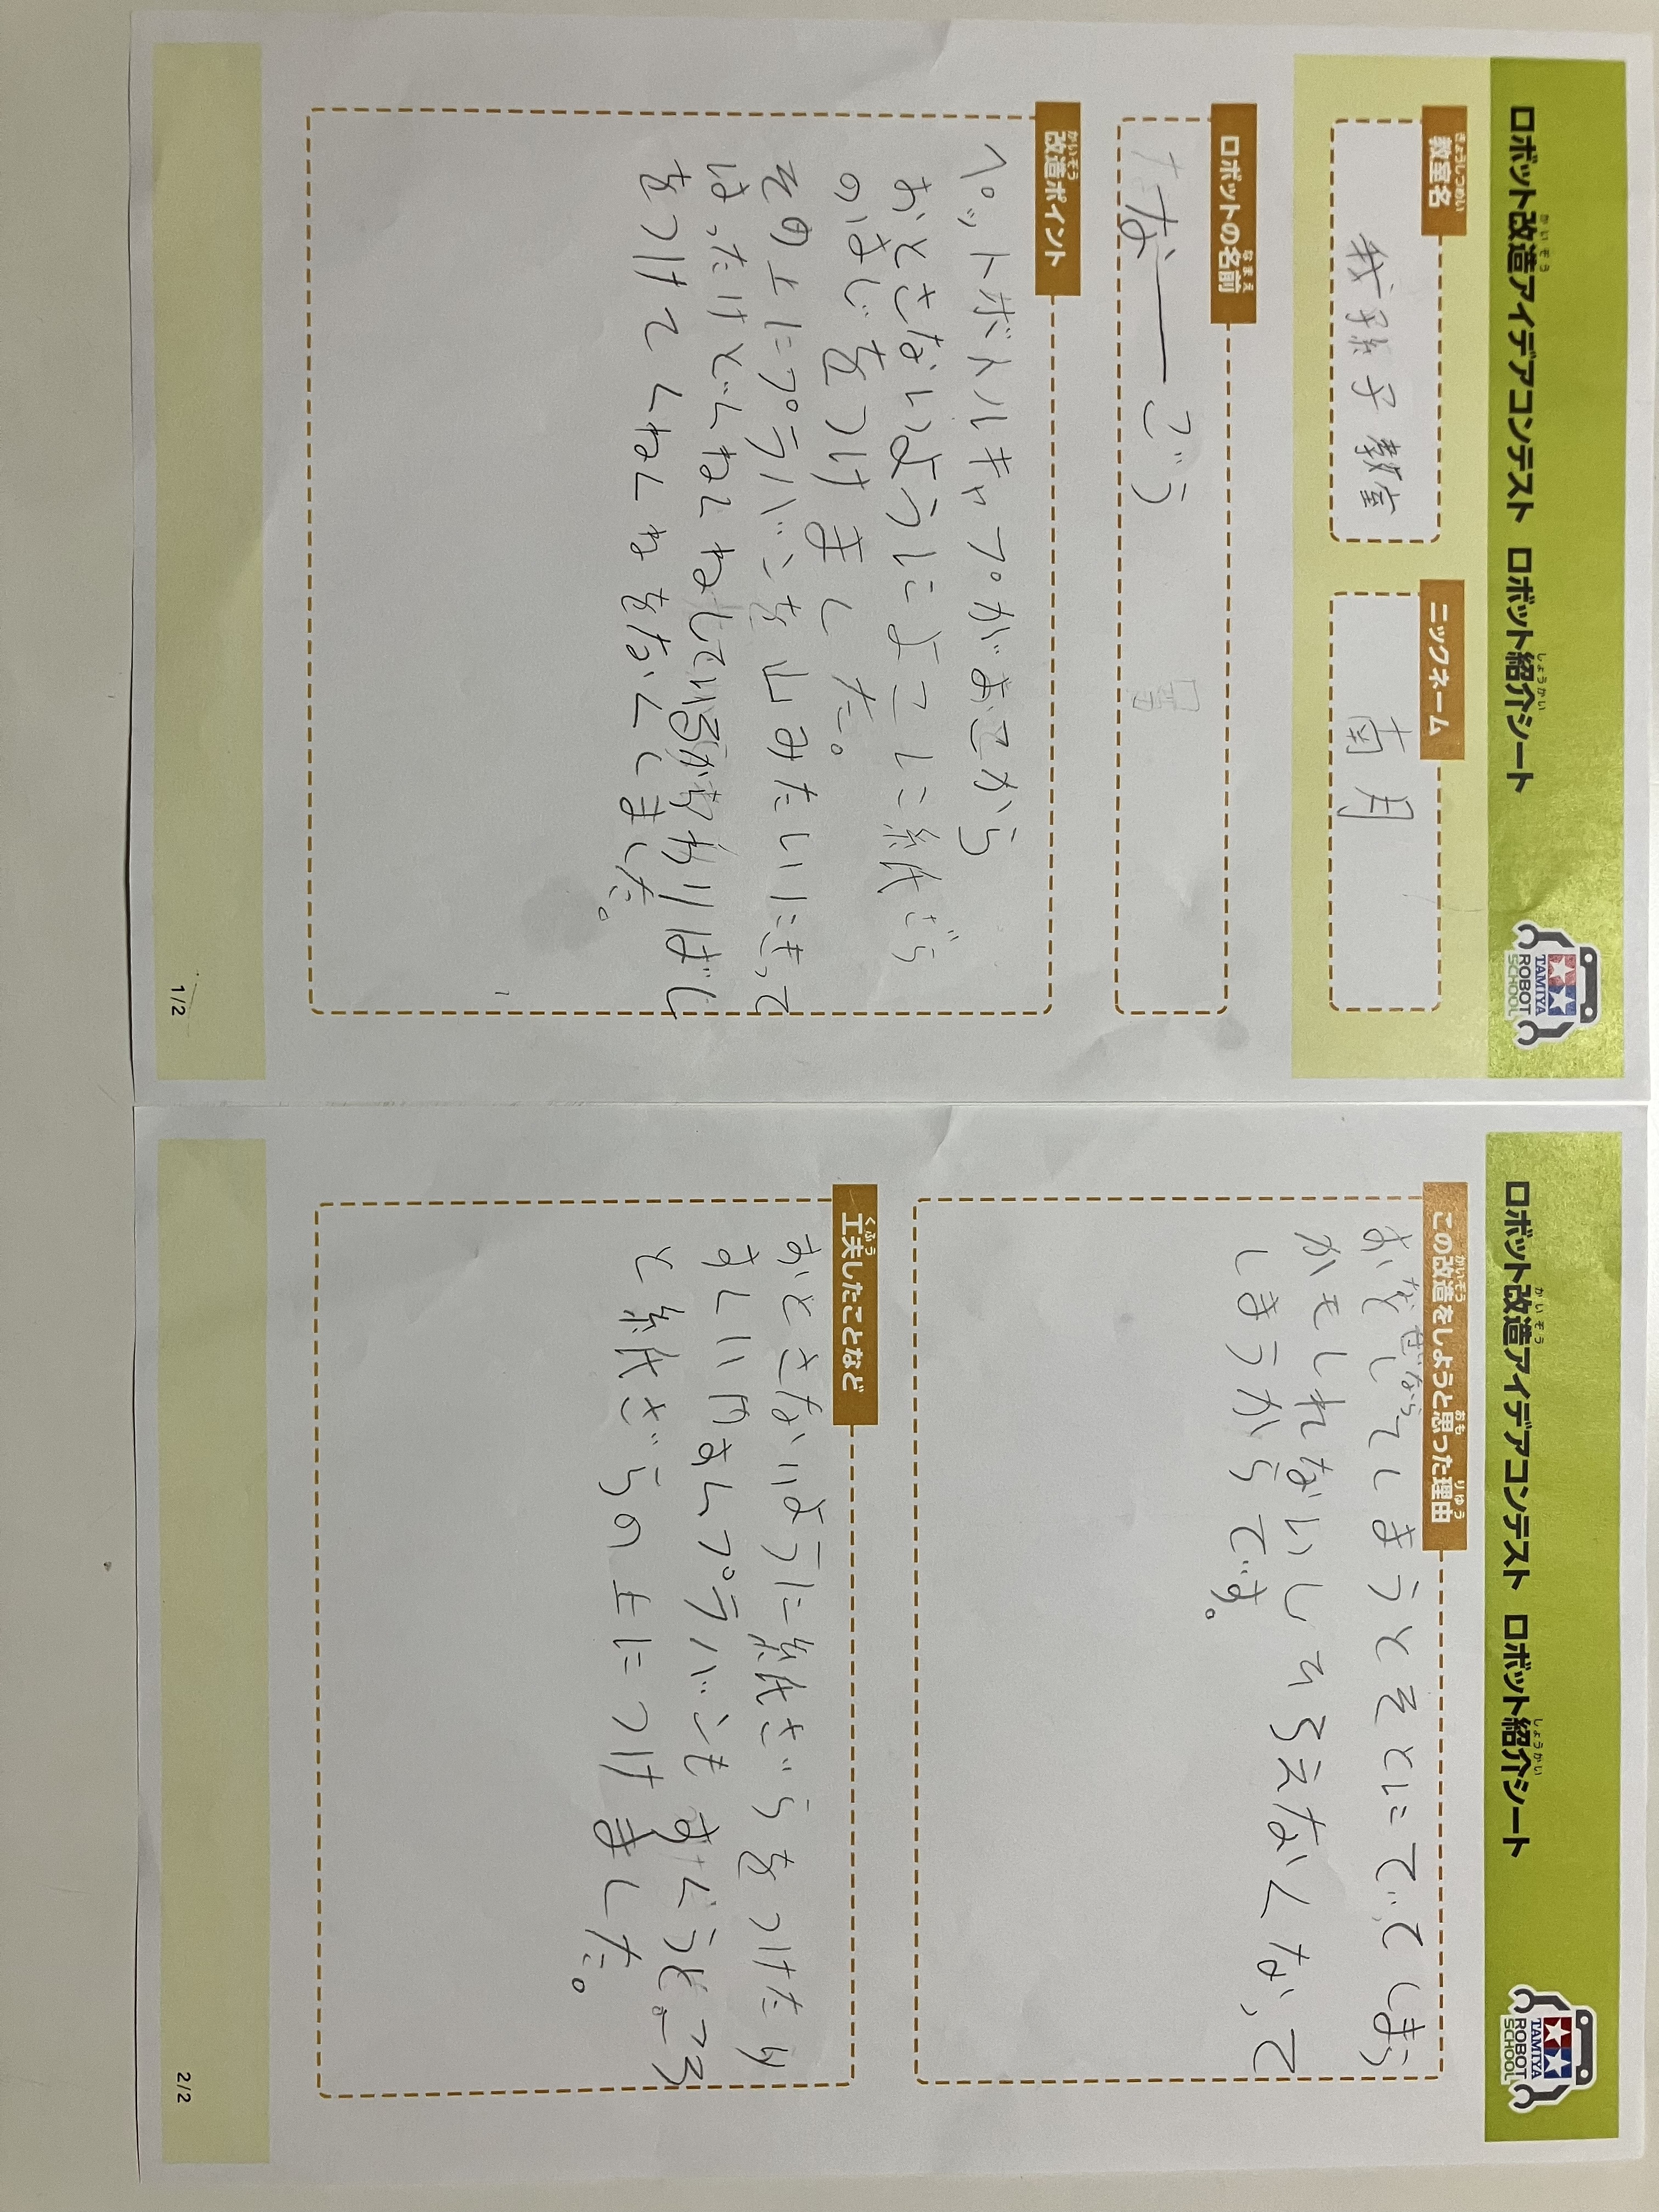 ロボット改造アイデアコンテスト ロボット紹介シート
TAMIYA
ROBOT
SCHOOL
教室名
我孫子教室
ニックネーム
南月
ロボットの名前
なーごう
改造ポイント
ペットボトルキャプがあこから
おとさないようによこに紙ざら
のはじをつけました。
その上にプラバンを山みたいにきって
はったけどくねくねしているからわりばし
をつけてくねくねをなくしました。
1/2
ロボット改造アイデアコンテスト ロボット紹介シート
TAMIYA
ROBOT
SCHOOL
この改造をしようと思った理由
なぜなら
おとしてしまうとそとにでてしまう
かもしれないしひろえなくなって
しまうからです。
工夫したことなど
おとさないように紙ざらをつけたり
プラバンも
と紙ざらの上につけました。
2/2